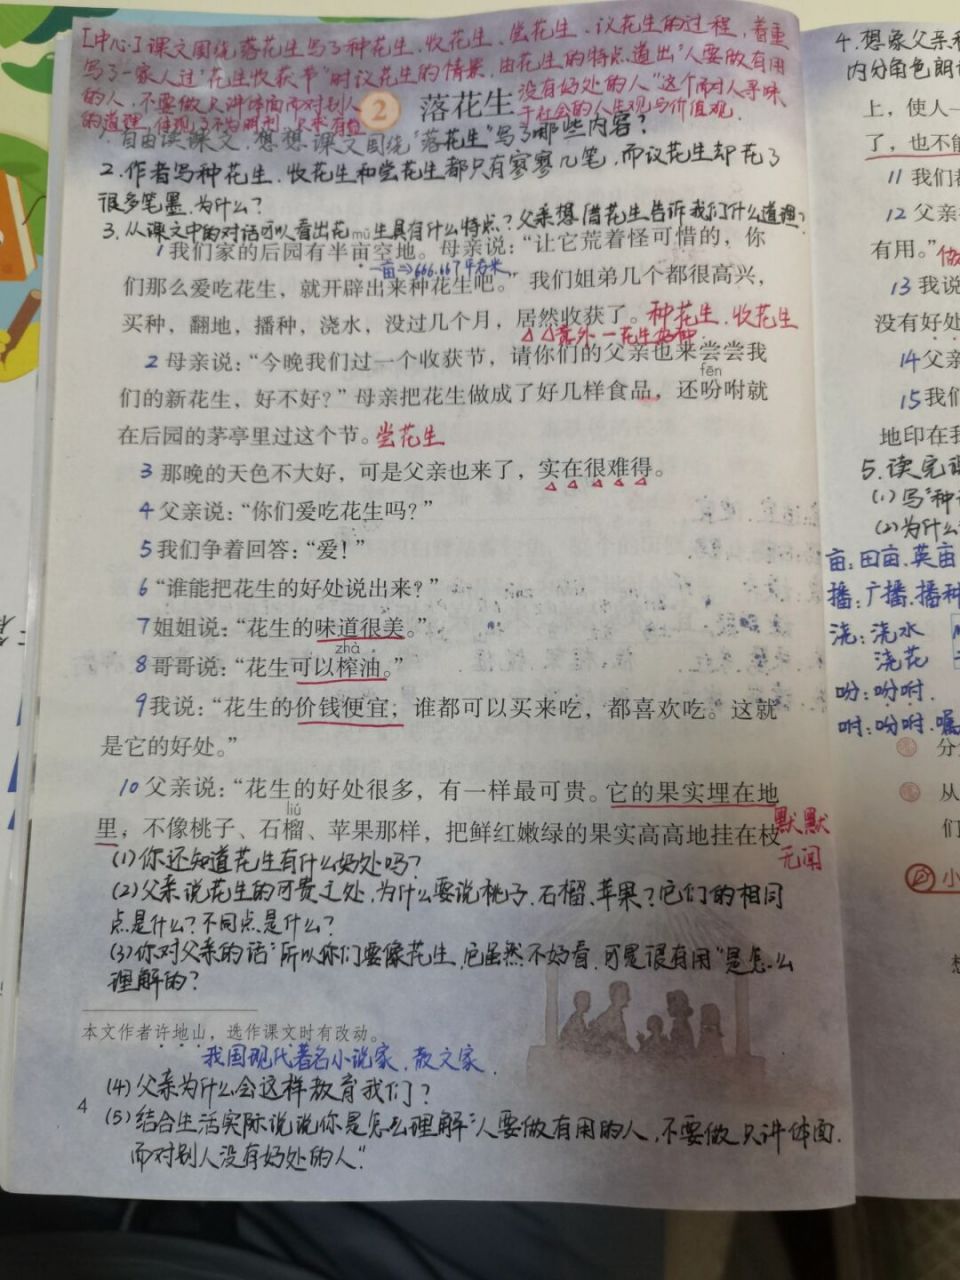 [中心]课文围绕落花生写了种花生、收花生、尝花生、议花生的过程,着重
写了一家人过"花生收获节"时议花生的情景,由花生的特点道出"人要做有用
的人,不要做只讲体面而对别人
没有好处的人"这个耐人寻味
的道理,体现了不为明利,只求有益
于社会的人生观与价值观.
2 落花生
1.自由读课文,想想课文围绕"落花生"写了哪些内容?
2.作者写种花生、收花生和尝花生都只有寥寥几笔,而议花生却花了
很多笔墨,为什么?
3.从课文中的对话可以看出花生具有什么特点?父亲想借花生告诉我们什么道理?
mǔ
1 我们家的后园有半亩空地。母亲说:“让它荒着怪可惜的,你
一亩⇒666.667平方米
们那么爱吃花生,就开辟出来种花生吧。”我们姐弟几个都很高兴,
买种,翻地,播种,浇水,没过几个月,居然收获了。种花生、收花生
意外—花生好种
2 母亲说:“今晚我们过一个收获节,请你们的父亲也来尝尝我
fēn
们的新花生,好不好?”母亲把花生做成了好几样食品,还吩咐就
在后园的茅亭里过这个节。尝花生
3 那晚的天色不大好,可是父亲也来了,实在很难得。
4 父亲说:“你们爱吃花生吗?”
5 我们争着回答:“爱!”
6 “谁能把花生的好处说出来?”
7 姐姐说:“花生的味道很美。”
zhà
8 哥哥说:“花生可以榨油。”
9 我说:“花生的价钱便宜,谁都可以买来吃,都喜欢吃。这就
是它的好处。”
10 父亲说:“花生的好处很多,有一样最可贵。它的果实埋在地
liú
里,不像桃子、石榴、苹果那样,把鲜红嫩绿的果实高高地挂在枝
默默
无闻
(1)你还知道花生有什么好处吗?
(2)父亲说花生的可贵之处,为什么要说桃子、石榴、苹果?它们的相同
点是什么?不同点是什么?
(3)你对父亲的话"所以你们要像花生,它虽然不好看,可是很有用"是怎么
理解的?
本文作者许地山,选作课文时有改动。
我国现代著名小说家、散文家.
(4)父亲为什么会这样教育我们?
(5)结合生活实际说说你是怎么理解"人要做有用的人,不要做只讲体面,
而对别人没有好处的人"
4
4.想象父亲和
内分角色朗读
上,使人一
了,也不能
11 我们都
12 父亲
有用。”做
13 我说
没有好处
14 父亲
15 我们
地印在我
5.读完课
(1)写"种
(2)为什么
亩:田亩、英亩
播:广播、播种
浇:浇水
浇花
吩:吩咐.
咐:吩咐、嘱
分
从
们
小
想